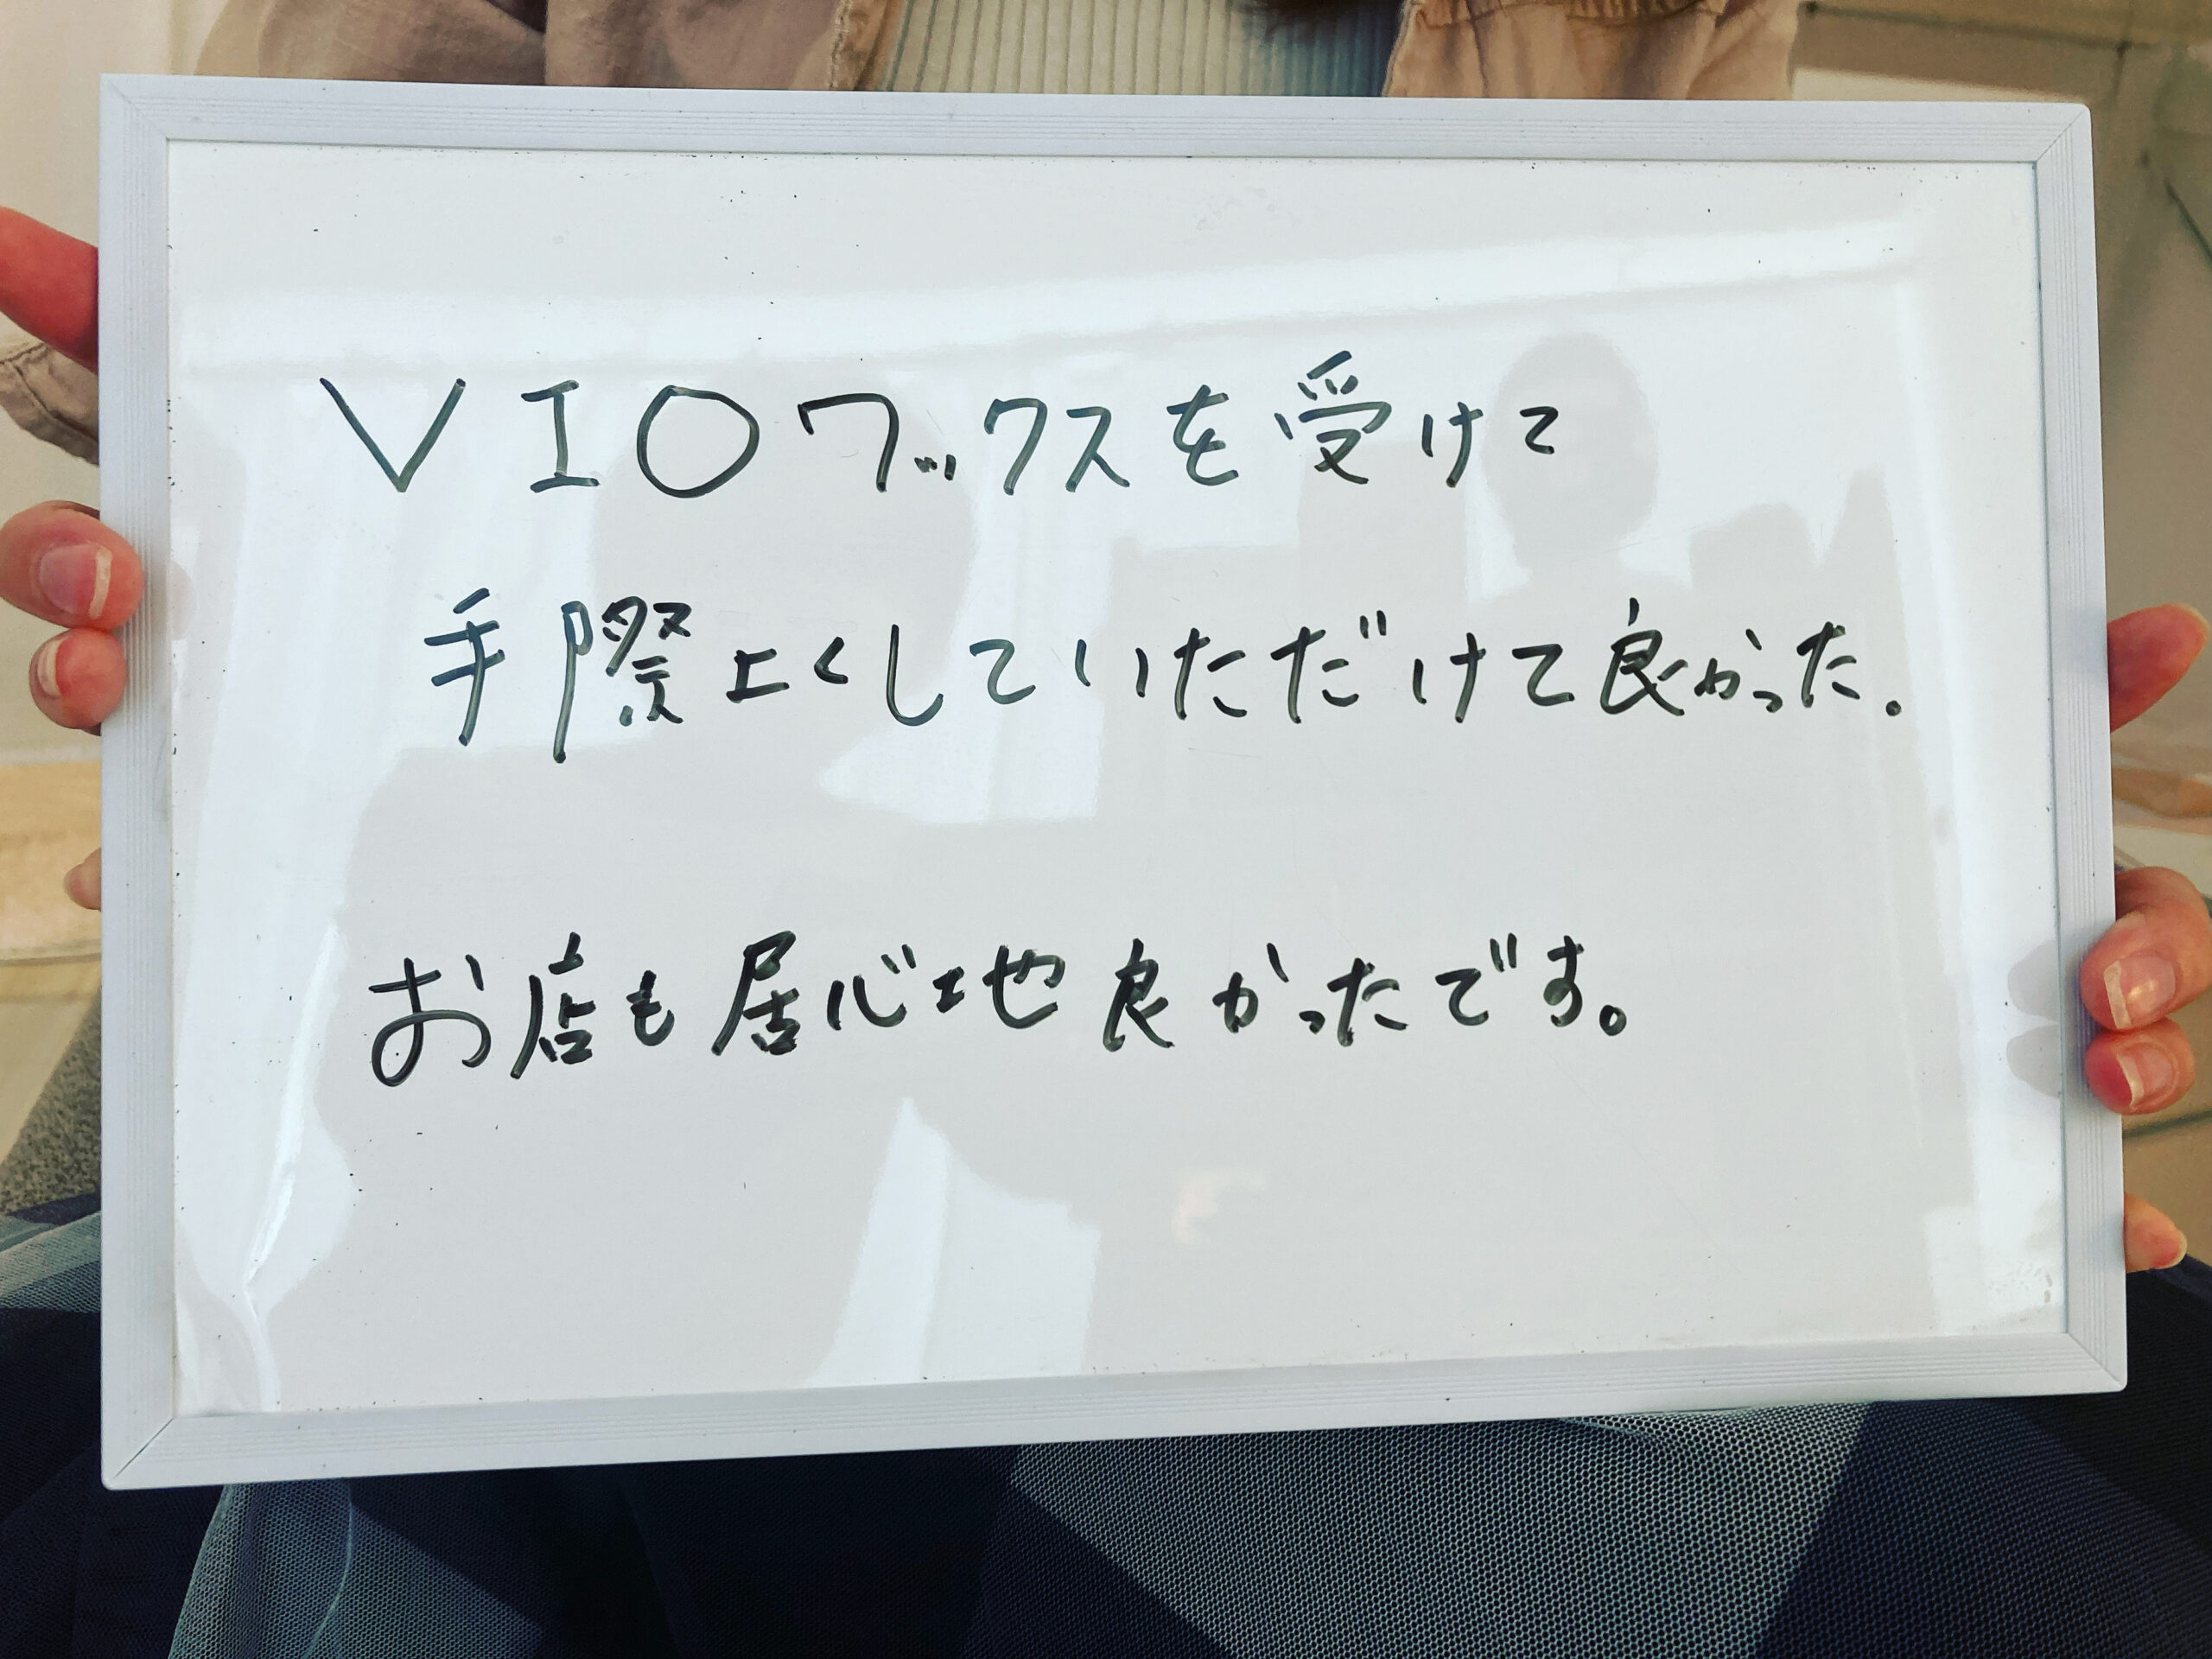 VIOワックスを受けて
手際よくしていただけて良かった.
お店も居心地良かったです。